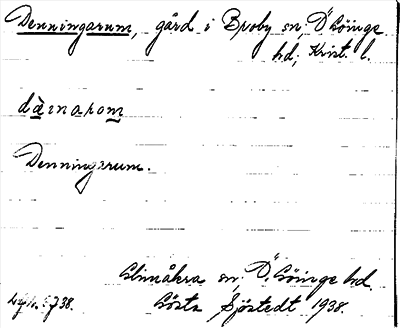 Denningarum, gård i Broby sn, Ö Göinge
hd, Krist. l.
dä̀inarom
Denningarum.
Glimåkra sn, Ö. Göinge hd.
Gösta Sjöstedt 1938.